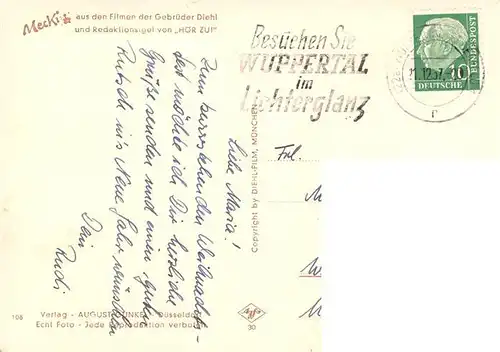 Mecki aus den Filmen der Gebrüder Diehl
und Redaktionsigel von „HÖR ZU!"
Besuchen Sie
WUPPERTAL
im
Lichterglanz
21.12.57
10
DEUTSCHE
BUNDESPOST
Liebe Maria!
Zum bevorstehenden Weihnachts-
fest möchte ich Dir herzliche
Grüße senden und einen guten
Rutsch ins Neue Jahr wünschen
Dein
Rudi
Copyright by DIEHL-FILM, MÜNCHEN
Frl.
M
W
106
Verlag - AUGUST GUNKEL - Düsseldorf
Echt Foto - Jede Reproduktion verboten
Agfa
30